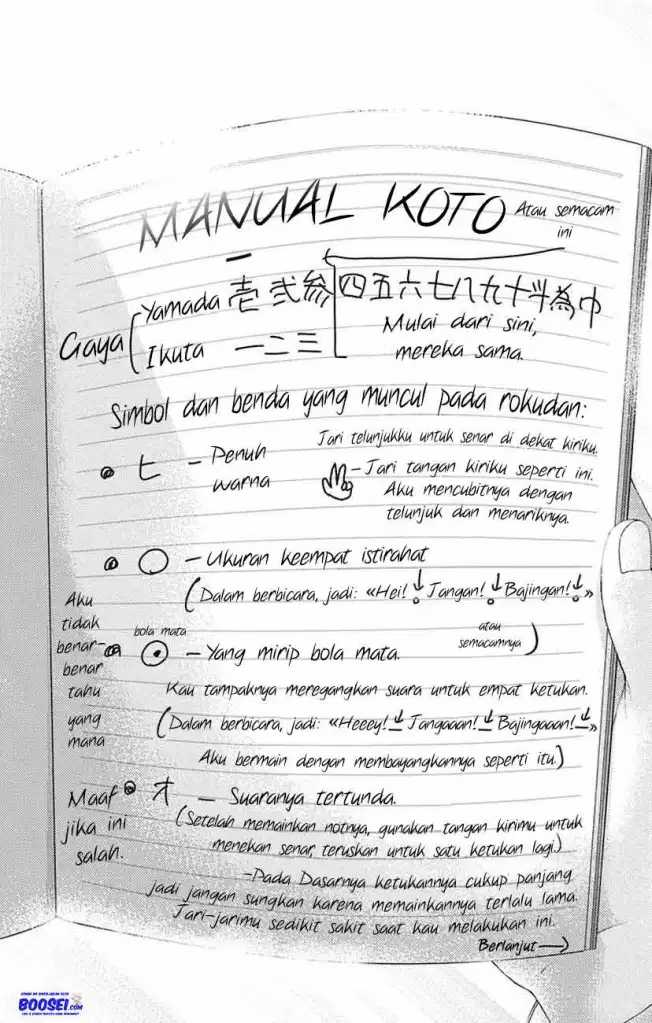 MANUAL KOTO
Atau semacam
ini
Gaya
Yamada 壱 弐 参
Ikuta 一 二 三
四五六七八九十斗為巾
Mulai dari sini,
mereka sama.
Simbol dan benda yang muncul pada rokudan:
Jari telunjukku untuk senar di dekat kiriku.
ヒ – Penuh
warna
– Jari tangan kiriku seperti ini.
Aku mencubitnya dengan
telunjuk dan menariknya.
○ – Ukuran keempat istirahat
(Dalam berbicara, jadi: «Hei! Jangan! Bajingan! »
atau
semacamnya)
Aku
tidak
benar-
benar
tahu
yang
mana
bola mata
– Yang mirip bola mata.
Kau tampaknya meregangkan suara untuk empat ketukan.
(Dalam berbicara, jadi: «Heeey! Jangaaan! Bajingaaan! »
Aku bermain dengan membayangkannya seperti itu.)
Maaf
jika ini
salah.
オ – Suaranya tertunda.
(Setelah memainkan notnya, gunakan tangan kirimu untuk
menekan senar, teruskan untuk satu ketukan lagi.)
-Pada Dasarnya ketukannya cukup panjang
jadi jangan sungkan karena memainkannya terlalu lama.
Jari-jarimu sedikit sakit saat kau melakukan ini.
Berlanjut→
BOOSEI.COM